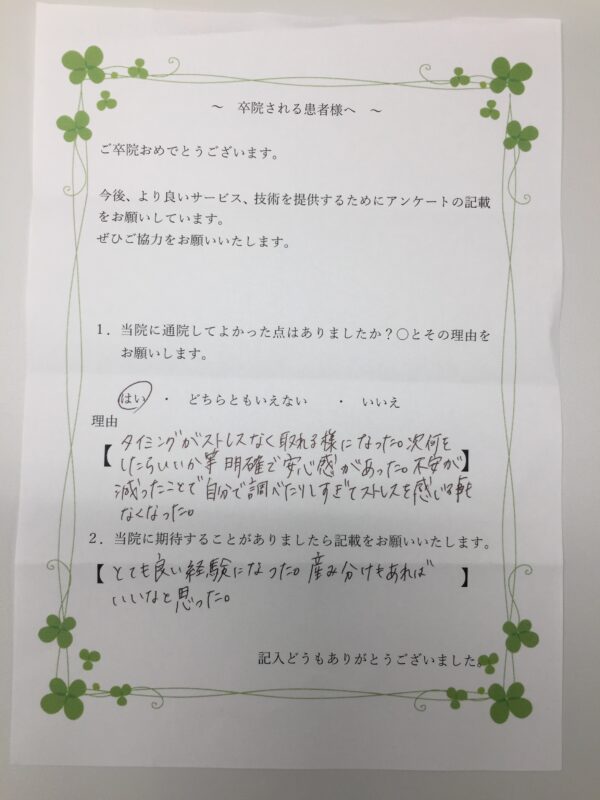 ～ 卒院される患者様へ ～
ご卒院おめでとうございます。
今後、より良いサービス、技術を提供するためにアンケートの記載
をお願いしています。
ぜひご協力をお願いいたします。
１．当院に通院してよかった点はありましたか？○とその理由を
お願いします。
はい ・ どちらともいえない ・ いいえ
理由
【タイミングがストレスなく取れる様になった。次何を
したらいいか等 明確で安心感があった。不安が】
減ったことで自分で調べたりしすぎてストレスを感じる事も
なくなった。
２．当院に期待することがありましたら記載をお願いいたします。
【とても良い経験になった。産み分けもあれば】
いいなと思った。
記入どうもありがとうございました。